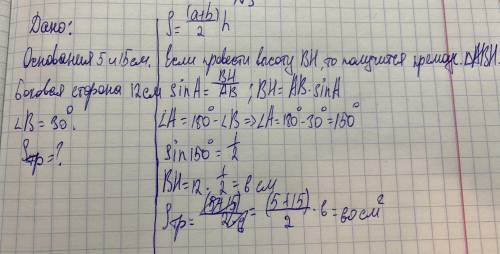 Дано:
Основания 5 и 15см.
боковая сторона 12см
∠B = 30°.
Sтр = ?
S = (a+b)/2 h
Если провести высоту BH то получится прямоуг. △ABH.
sin A = BH/AB ; BH = AB · sin A
∠A = 180° - ∠B => ∠A = 180° - 30° = 150°
sin 150° = 1/2
BH = 12 · 1/2 = 6 см
Sтр = (5+15)/2·6 = (5+15)/2 · 6 = 60 см²